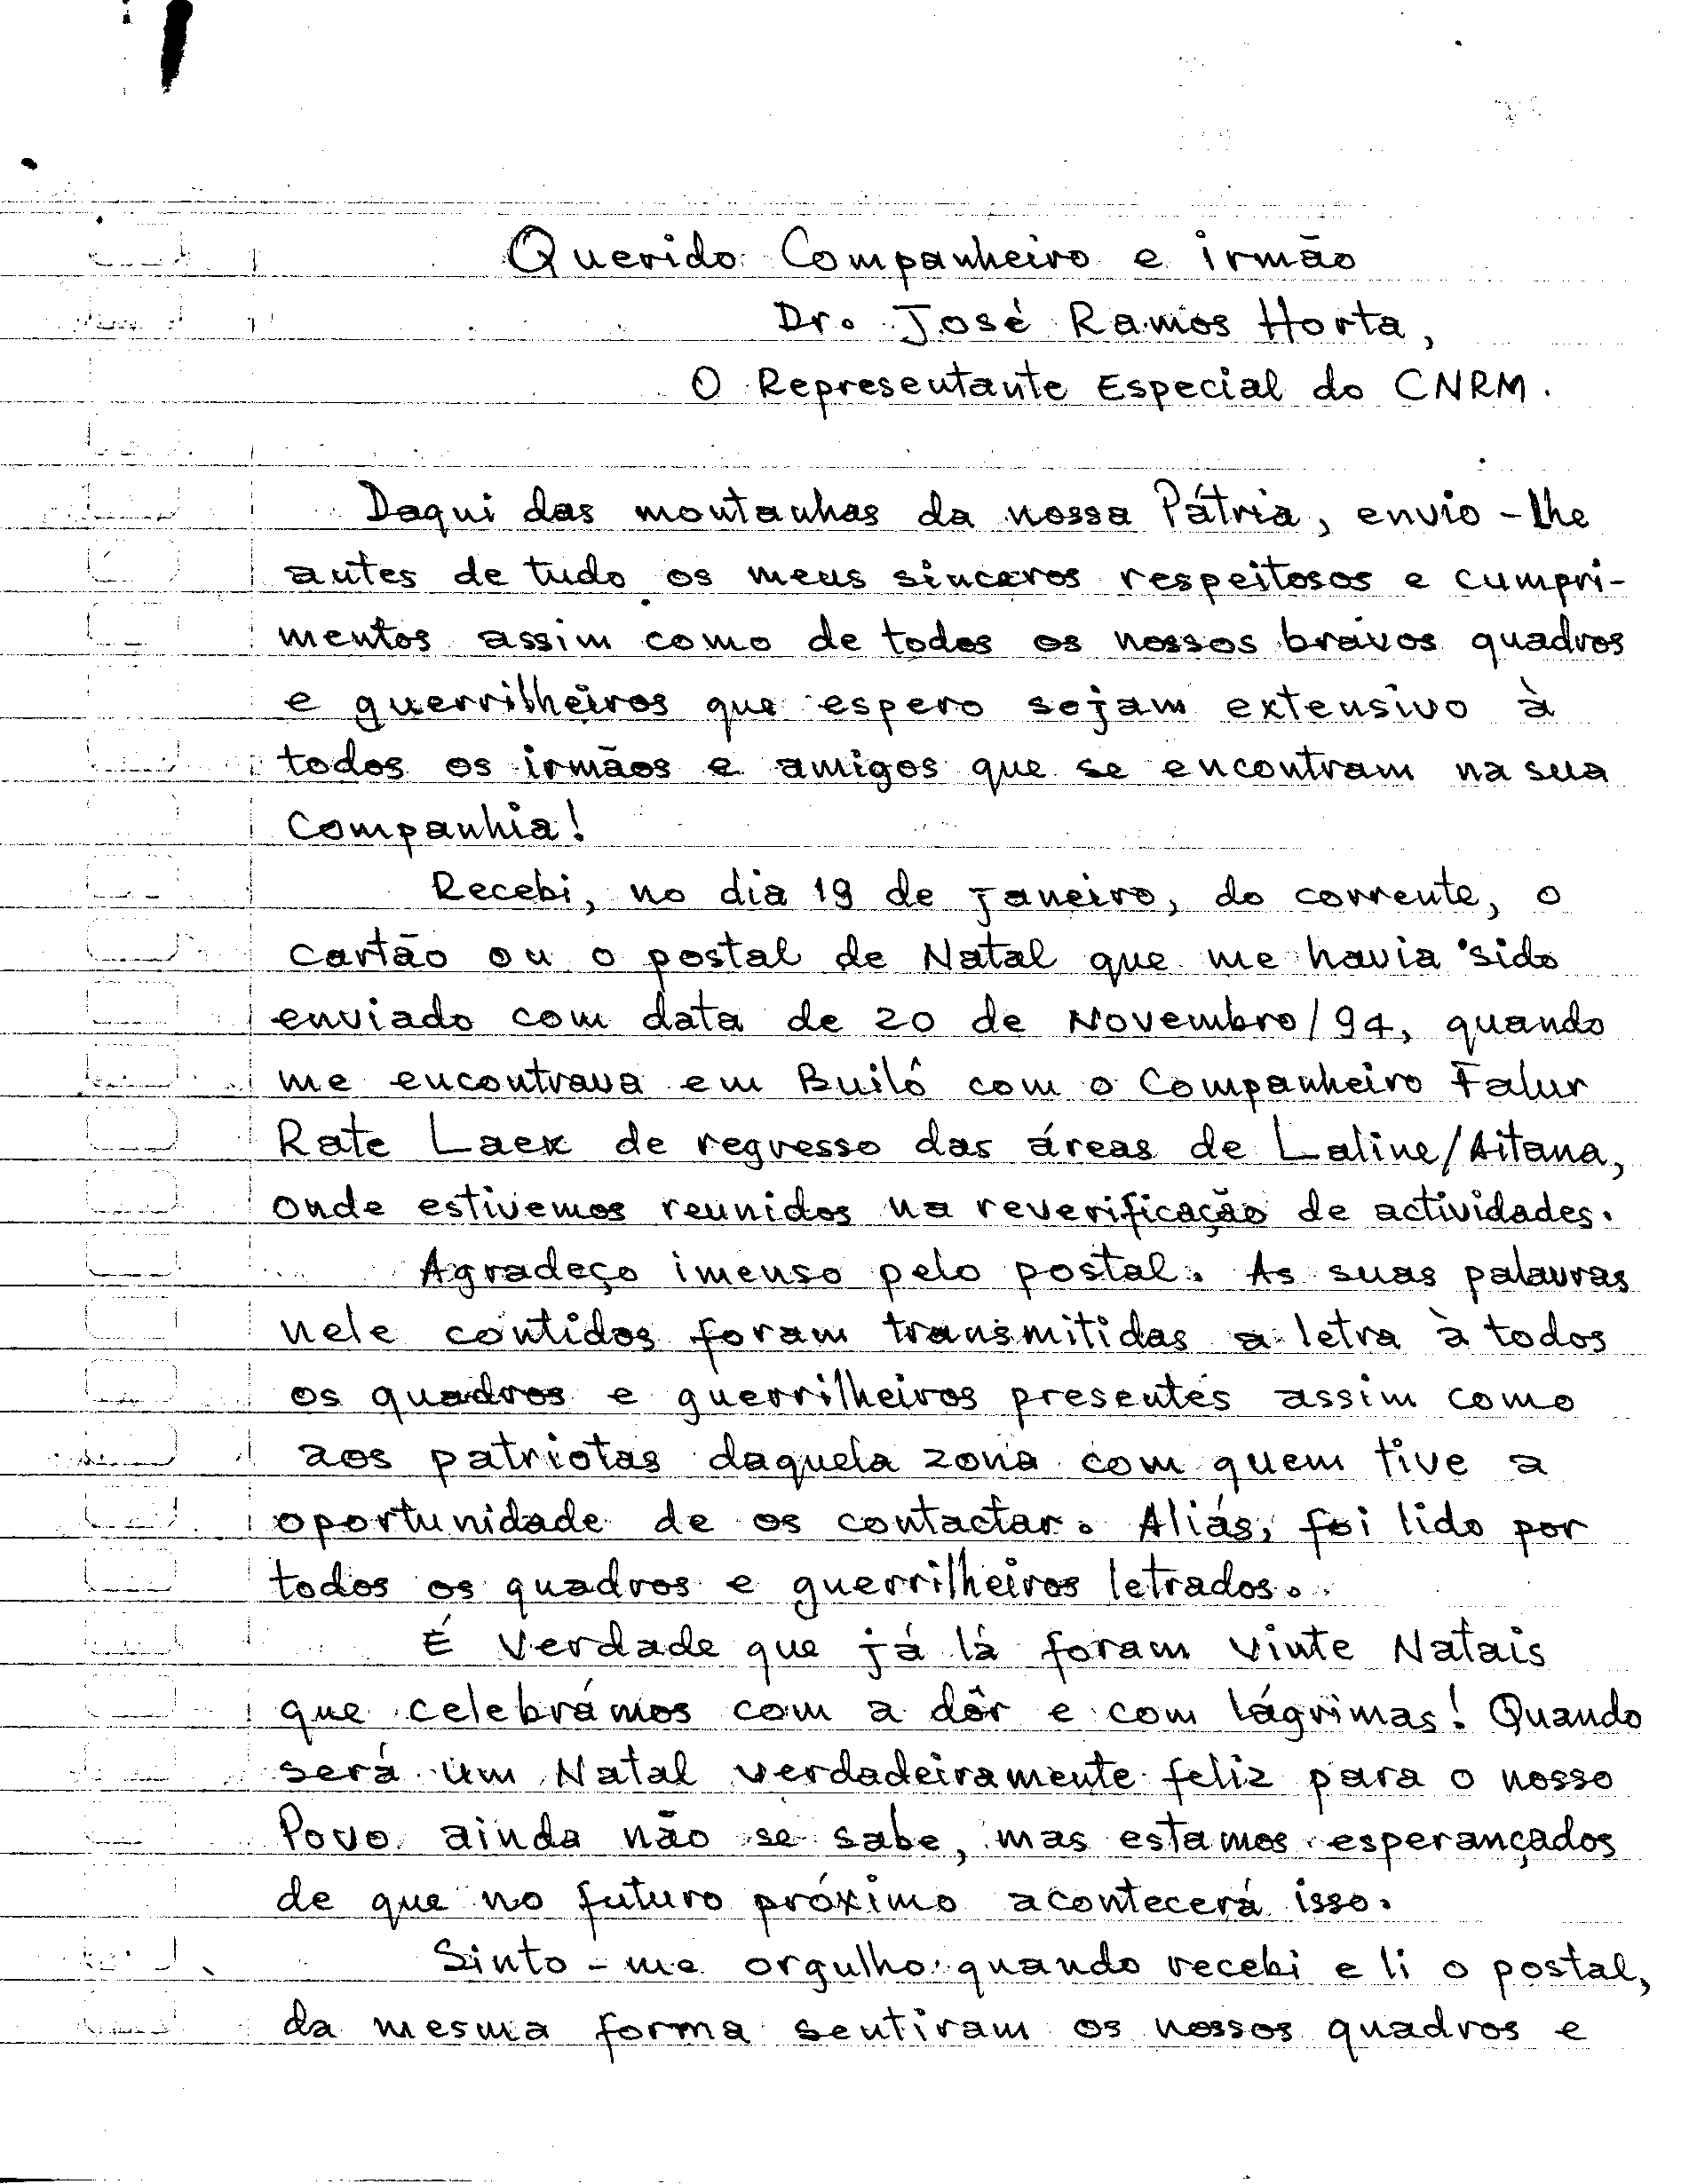 Querido Companheiro e irmão
Dr. José Ramos Horta,
O Representante Especial do CNRM.
Daqui das montanhas da nossa Pátria, envio-lhe
antes de tudo os meus sinceros respeitosos e cumpri-
mentos assim como de todos os nossos bravos quadros
e guerrilheiros que espero sejam extensivo à
todos os irmãos e amigos que se encontram na sua
Companhia!
Recebi, no dia 19 de Janeiro, do corrente, o
cartão ou o postal de Natal que me havia sido
enviado com data de 20 de Novembro/94, quando
me encontrava em Builô com o Companheiro Falur
Rate Laek de regresso das áreas de Laline/Aitana,
onde estivemos reunidos na reverificação de actividades.
Agradeço imenso pelo postal. As suas palavras
nele contidas foram transmitidas a letra à todos
os quadros e guerrilheiros presentes assim como
aos patriotas daquela zona com quem tive a
oportunidade de os contactar. Aliás, foi lido por
todos os quadros e guerrilheiros letrados.
É verdade que já lá foram vinte Natais
que celebrámos com a dôr e com lágrimas! Quando
será um Natal verdadeiramente feliz para o nosso
Povo ainda não se sabe, mas estamos esperançados
de que no futuro próximo acontecerá isso.
Sinto-me orgulho quando recebi e li o postal,
da mesma forma sentiram os nossos quadros e